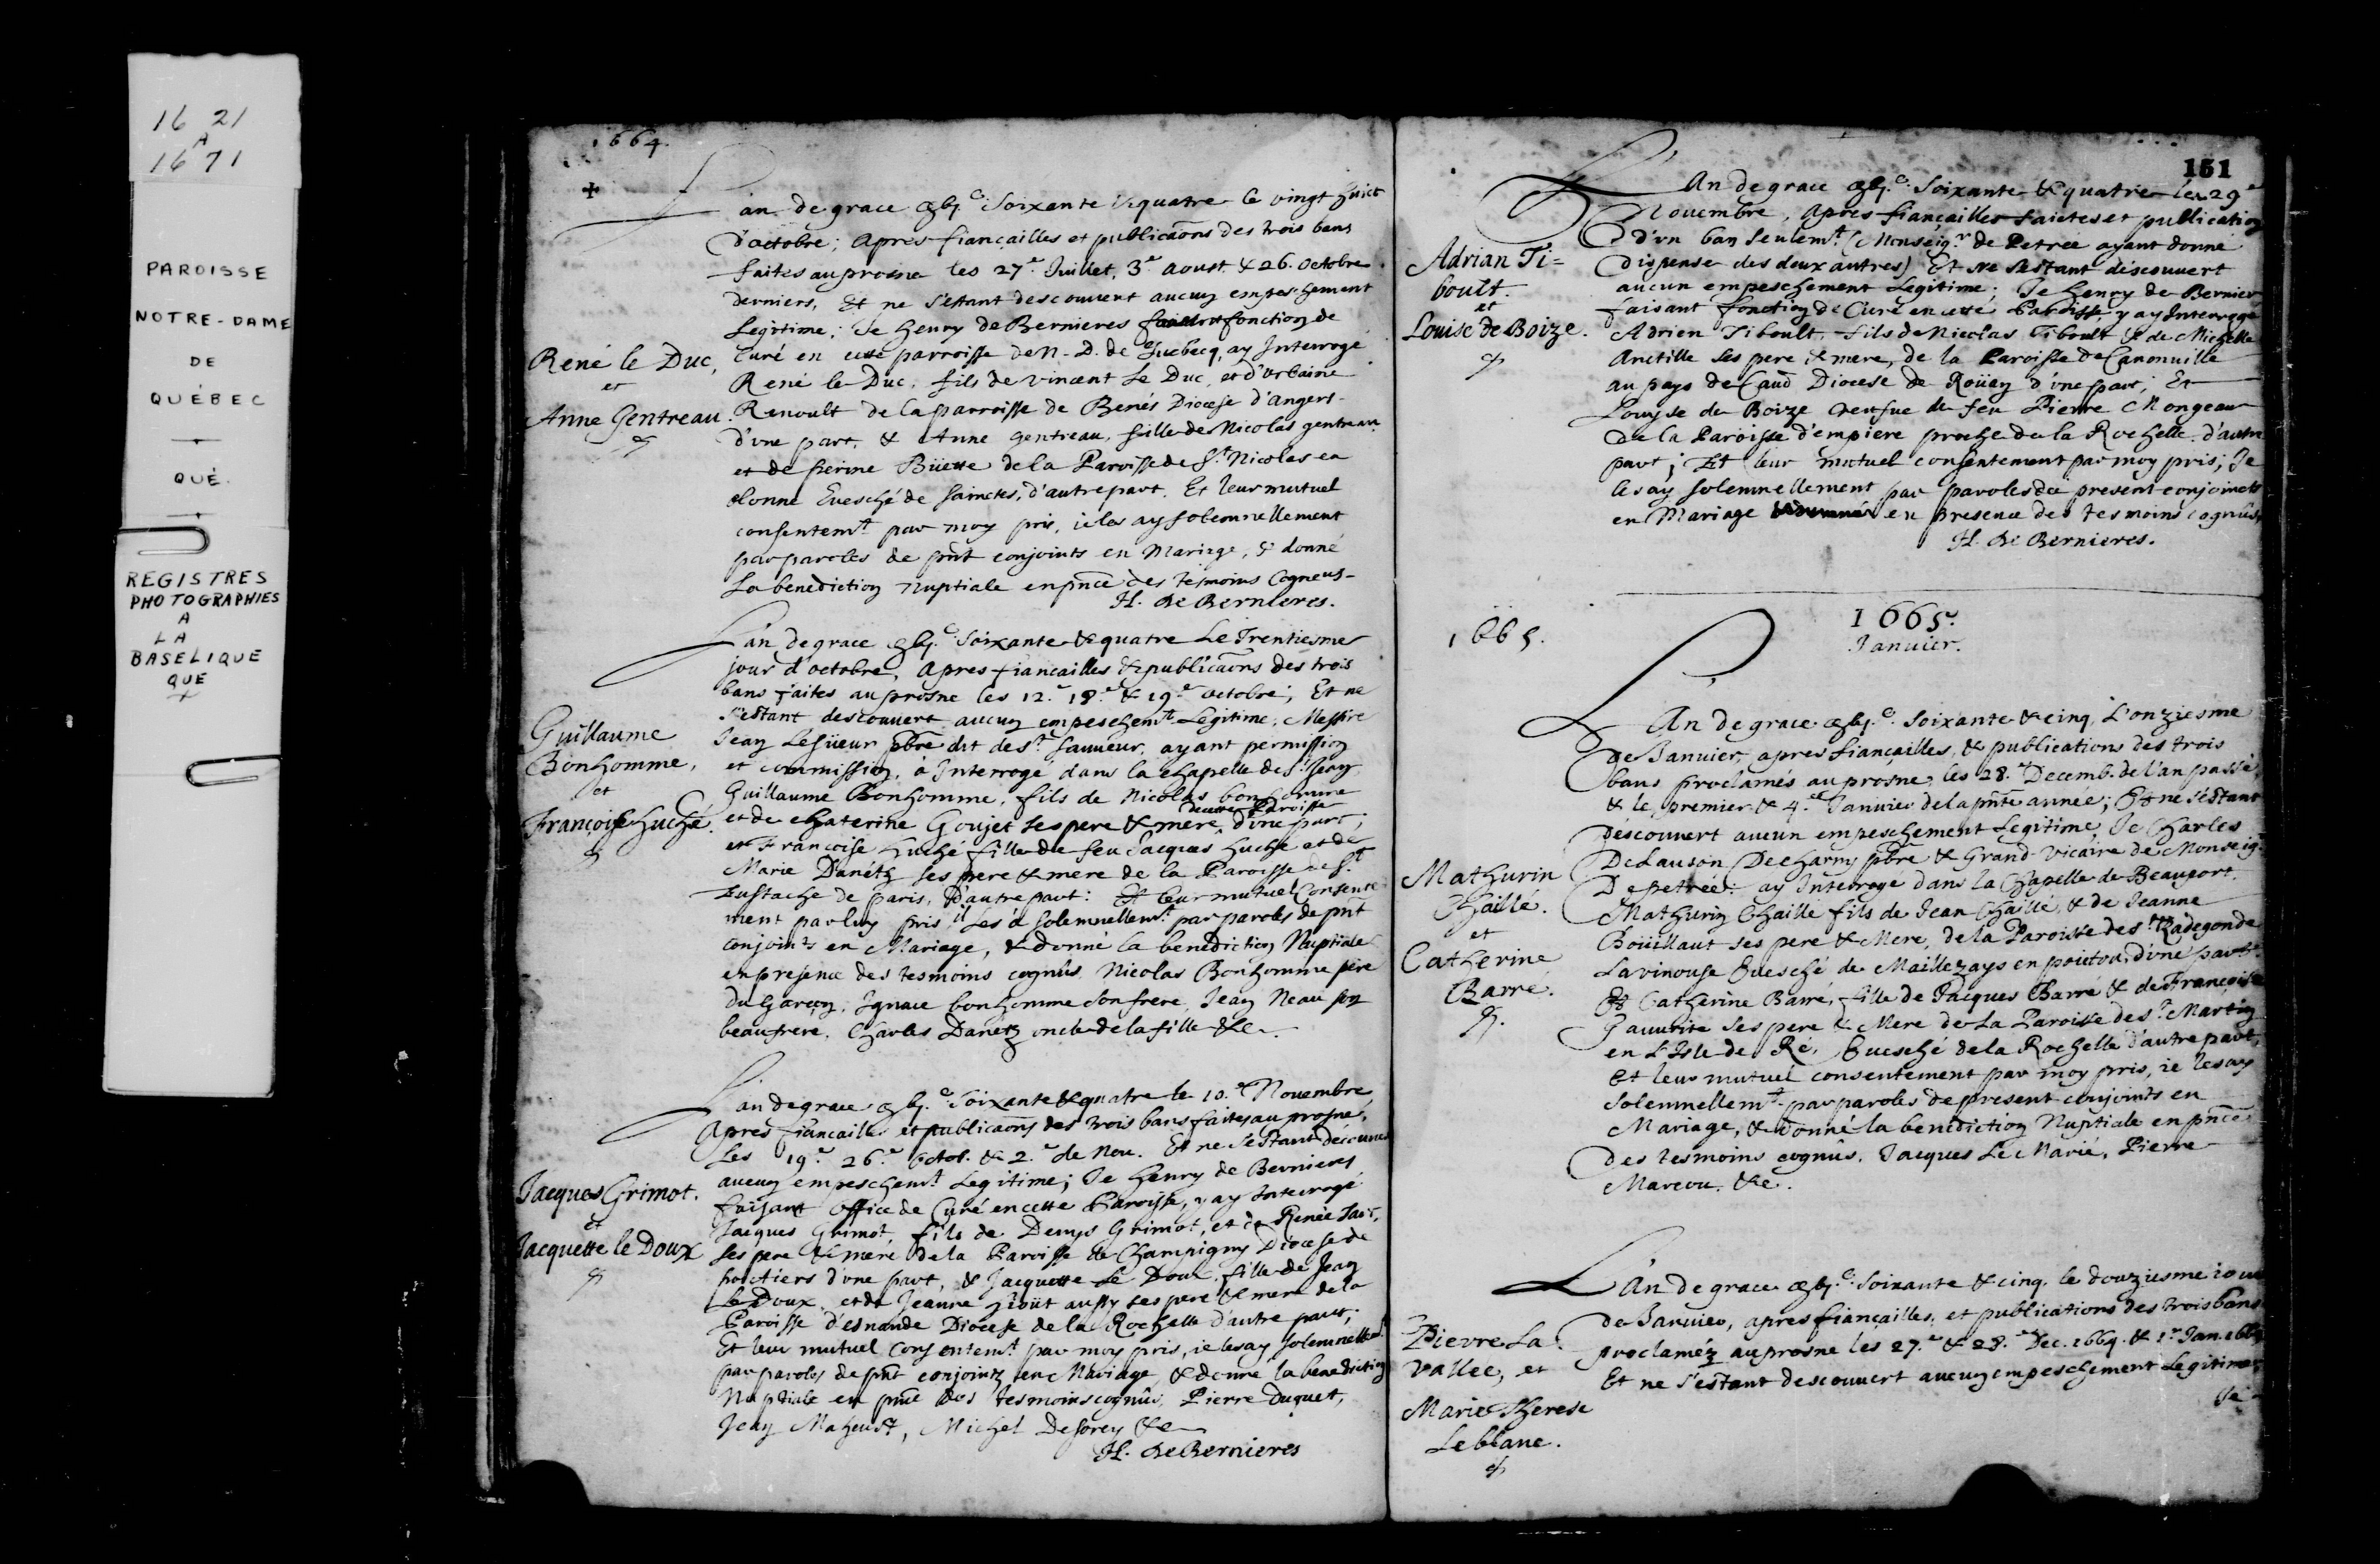 16 21
A
16 71
PAROISSE
NOTRE-DAME
DE
QUÉBEC
QUÉ.
REGISTRES
PHOTOGRAPHIES
A
LA
BASELIQUE
QUE
1664.
L'an de grace Soixante & quatre le vingt huict
d'octobre; Apres fiançailles et publicaõns des trois bans
faites au prosne les 27.e Juillet, 3.e aoust. & 26. octobre
derniers, Et ne s'estant descouvert aucun empeschement
Legitime; Je henry de Bernieres fonction de
Curé en cette parroisse de N. D. de Quebecq, ay Interrogé
René le Duc, fils de vincent Le Duc, et d'Urbaine
Renoult de la parroisse de Benés Diocese d'angers
d'une part, & Anne gentreau, fille de Nicolas gentreau
et de perine Büette de la Paroisse de St. Nicolas en
olonne Evesché de sainctes, d'autre part. Et leur mutuel
consentemt. par moy pris, ie les ay solemnellement
par paroles de pñt conjoints en Mariage, & donné
La benediction nuptiale en pñce des tesmoins Cogneus
H. de Bernieres.
René le Duc,
et
Anne Gentreau.
L'an de grace Soixante & quatre Le Trentiesme
jour d'octobre, Apres fiancailles & publicaõns des trois
bans faites au prosne les 12.e 18.e & 19.e octobre; Et ne
s'estant descouvert aucun empeschemt. Legitime; Messire
Jean Lesüeur pbrẽ dit de St. Sauveur, ayant permission
et commission, à Interrogé dans la chapelle de St. Jean
Guillaume Bonhomme, fils de Nicolas bonhomme
de cette Paroisse
et de chaterine Goujet ses pere & mere, d'une part;
et Francoise huché fille de feu Jacques huche et de
Marie Danétz ses pere & mere de la Paroisse de St.
Eustache de paris, d'autre part: Et leur mutuel Consente
ment par luy pris il Les à solemnellemt. par paroles de pñt
conjoints en Mariage, & donné la benediction Nuptiale
en presence des tesmoins cognûs Nicolas Bonhomme père
du garçon, Ignace bonhomme son frere, Jean Neau son
beaufrere, Charles Danétz oncle de la fille &c.
Guillaume
Bonhomme,
et
Françoise huché.
L'an de grace Soixante & quatre le 10.e Novembre,
Apres fiancailles et publicaõns des trois bans faites au prosne,
Les 19.e 26.e octob. & 2.e de Nov. Et ne s'estant découvert
aucun empeschemt. Legitime; Je henry de Bernieres
faisant office de Curé en cette Paroisse, y ay Interrogé
Jacques Grimot, fils de Denys Grimot, et de Renée
ses pere & mere de la Paroisse de Champigny Diocese de
poictiers d'une part, & Jacquette Le Doux, fille de Jean
Le Doux, et de Jeanne aussy ses pere & mere de la
Paroisse d'esnande Diocese de la Rochelle d'autre part;
Et leur mutuel Consentemt. par moy pris, ie les ay solemnellemt.
par paroles de pñt conjointz en Mariage, & donné la benediction
Nuptiale en pñce des tesmoins cognûs, Pierre Duquet,
Jean Maheust, Michel Desorcy &c
H. de Bernieres
Jacques Grimot.
et
Jacquette le Doux
151
L'An de grace Soixante & quatre le 29.e
Novembre, Apres fiançailles faictes et publication
d'un ban seulemt. (Monseigr. de Petrée ayant donné
dispense des deux autres) Et ne s'estant descouvert
aucun empeschement Legitime; Je henry de Bernieres
faisant fonction de Curé en cette Paroisse y ay Interrogé
Adrien Tiboult, fils de Nicolas Tiboult & de Michelle
Anctille ses pere & mere, de la Paroisse de Canonuille
au pays de Caud Diocese de Roüen d'une part; Et
Louyse de Boize veufue de feu Pierre Mongeau
de la Paroisse d'empiere proche de la Rochelle d'autre
part; Et leur mutuel consentement par moy pris; Je
les ay solemnellement par paroles de present conjoincts
en Mariage en presence des tesmoins cognûs.
H. de Bernieres.
Adrian Ti=
boult.
et
Louise de Boize.
1665.
1665.
Januier.
L'An de grace Soixante & cinq, L'onziesme
de Januier, apres fiançailles, & publications des trois
bans proclamés au prosne, les 28.e Decemb. de l'an passé,
& le premier & 4.e Januier de la pñte année; Et ne s'estant
descouvert aucun empeschement Legitime, Je Charles
De Lauson De Charny pbrẽ & Grand-Vicaire de Monseigr.
De petrée: ay Interrogé dans la Chapelle de Beauport
Mathurin Chaillé fils de Jean Chaillé, & de Jeanne
Boüillaut ses pere & Mere, de la Paroisse de Ste. Radegonde
Lavinouse Evesché de Maillezays en poitou, d'une part
Et Catherine Barré, fille de Jacques Barre & de Françoise
Gauurite ses pere & Mere de La Paroisse de St. Martin
en L'Isle de Ré, Evesché de la Rochelle d'autre part,
Et leur mutuel consentement par moy pris, ie les ay
Solemnellemt. par paroles de present conjoints en
Mariage, & donné la benediction Nuptiale en pñce
des tesmoins cognûs. Jacques Le Marié, Pierre
Marcou. &c.
Mathurin
Chaillé.
et
Catherine
Barré.
L'An de grace Soixante & cinq. le douziesme iour
de Januier, apres fiançailles, et publications des trois bans
proclaméz au prosne les 27.e & 28.e Dec. 1664. & 1.er Jan. 1665
Et ne s'estant descouvert aucun empeschement Legitime;
Je
Pierre La
vallee, et
Marie Therese
Leblanc.